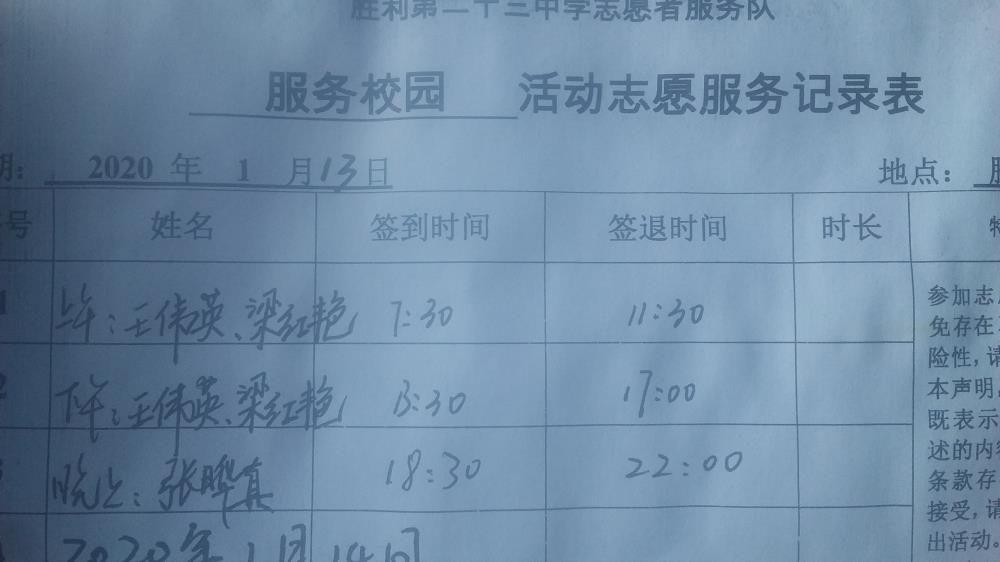 胜利第二十三中学志愿者服务队
服务校园 活动志愿服务记录表
期： 2020 年 1 月13日 地点：
号 姓名 签到时间 签退时间 时长
1 上午：王伟英、梁红艳 7:30 11:30
2 下午：王伟英、梁红艳 13:30 17:00
晚上：张晔真 18:30 22:00
2020年1月14日
参加志
免存在
险性，请
本声明
既表示
述的内容
条款存
接受，请
出活动。